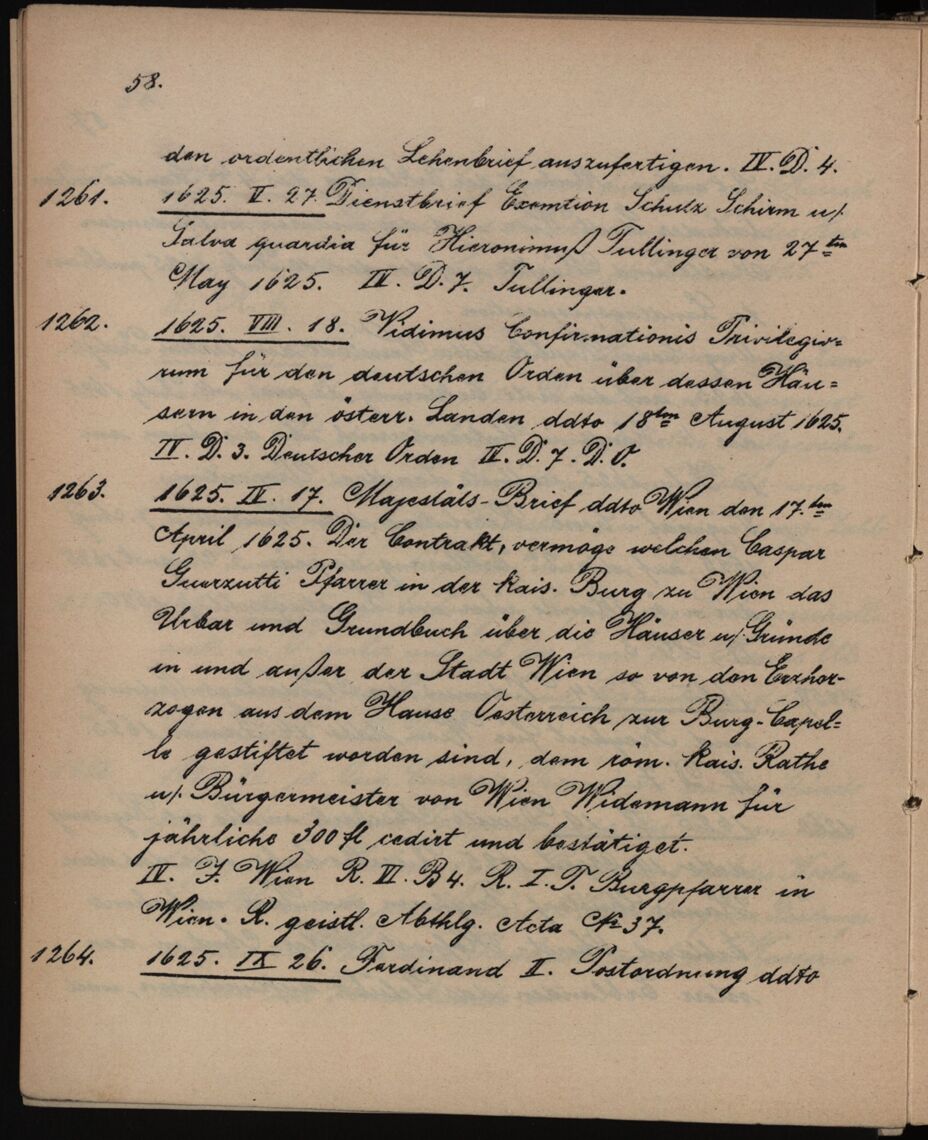 58.
den ordentlichen Lehenbrief auszufertigen. IV. D. 4.
1261. 1625. V. 27. Dienstbrief Exemtion Schutz Schirm u/.
Salva guardia für Hieronimuß Tullinger von 27ten
May 1625. IV. D. 7. Tullinger.
1262. 1625. VIII. 18. Vidimus Confirmationis Privilegio=
rum für den deutschen Orden über dessen Häu=
sern in den österr. Landen ddto 18ten August 1625.
IV. D. 3. Deutscher Orden IV. D. 7. D. O.
1263. 1625. IV. 17. Majestäts-Brief ddto Wien den 17.ten
April 1625. Der Contrakt, vermöge welchen Caspar
Guarzutti Pfarrer in der kais. Burg zu Wien das
Urbar und Grundbuch über die Häuser u/. Gründe
in und außer der Stadt Wien so von den Erzher-
zogen aus dem Hause Oesterreich zur Burg-Capel=
le gestiftet worden sind, dem röm. kais. Rathe
u/. Bürgermeister von Wien Widemann für
jährliche 300 fl cedirt und bestätiget.
IV. F. Wien R. VI. B 4. R. I. P. Burgpfarrer in
Wien. R. geistl. Abthlg. Acta No 37.
1264. 1625. IX 26. Ferdinand II. Postordnung ddto